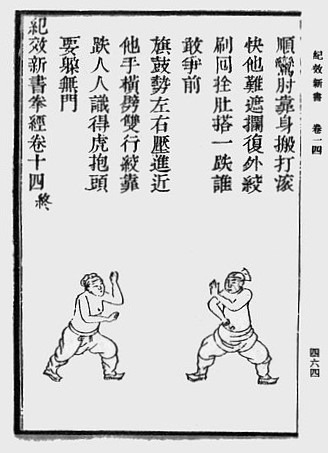 紀效新書 卷一四
四六四
順鸞肘靠身搬打滚
快他難遮攔復外絞
刷回拴肚搭一跌誰
敢爭前
旗鼓勢左右壓進近
他手橫劈雙行絞靠
跌人人識得虎抱頭
要躲無門
紀效新書拳經卷十四終